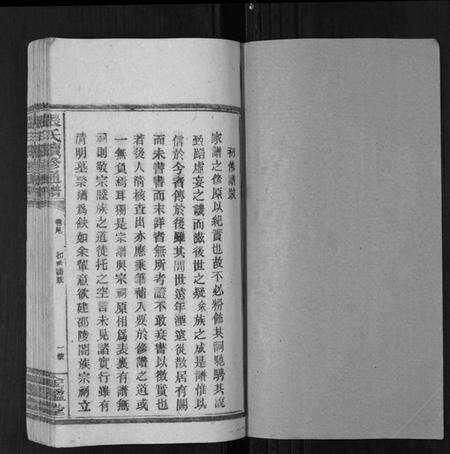 初修譜跋
家譜之修原以紀實也故不必粉飾其詞馳騁其說
致蹈虛妄之譏而滋後世之疑矣族之成是譜惟以
信於今者傳於後雖其間世遠年湮遷徙散居有闕
而未書書而未詳者無所考證不敢妄書以徵實也
若後人猜核查出亦應秉筆補入要於修譜之道或
一無負焉耳獨是宗譜與宗祠原相為表裏有譜無
祠則敬宗睦族之道徒托之空言未見諸實行雖有
清明墓祭猶為缺如余輩意欲建邵陵闔族宗祠立
張氏續修通譜
卷尾
初修譜跋
一